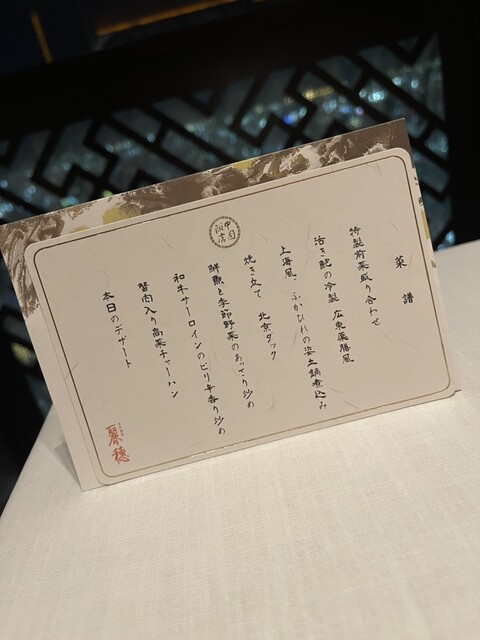 菜譜
特製前菜盛り合わせ
活き鮑の冷製 広東薬膳風
上海風 ふかひれの姿土鍋煮込み
焼き立て 北京ダック
鮮魚と季節野菜のあっさり炒め
和牛サーロインのピリ辛香り炒め
蟹肉入り高菜チャーハン
本日のデザート
麗穂
中国
飯店